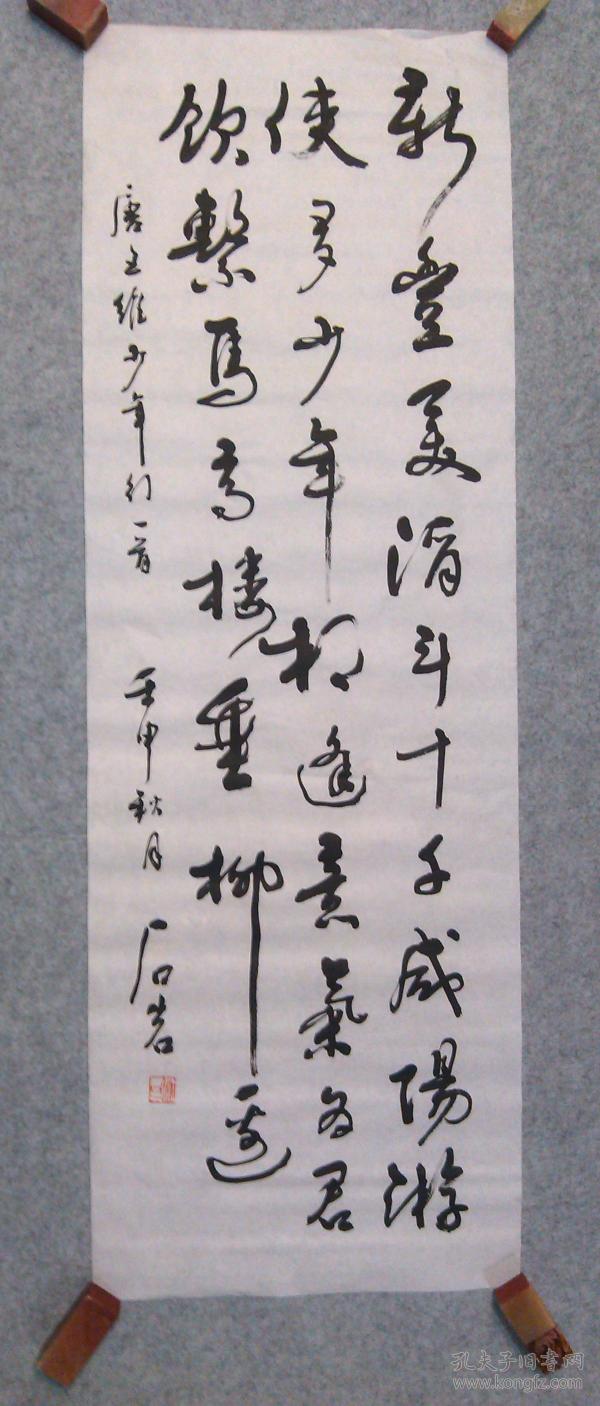 新豐美酒斗十千咸陽游
侠多少年相逢意氣為君
飲繫馬高樓垂柳邊
唐王維少年行一首
壬申秋月
石岩
孔夫子旧书网
www.kongfz.com